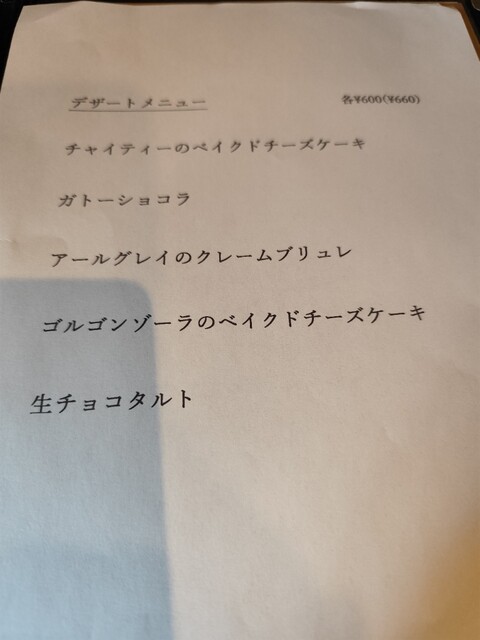 デザートメニュー 各¥600(¥660)
チャイティーのベイクドチーズケーキ
ガトーショコラ
アールグレイのクレームブリュレ
ゴルゴンゾーラのベイクドチーズケーキ
生チョコタルト